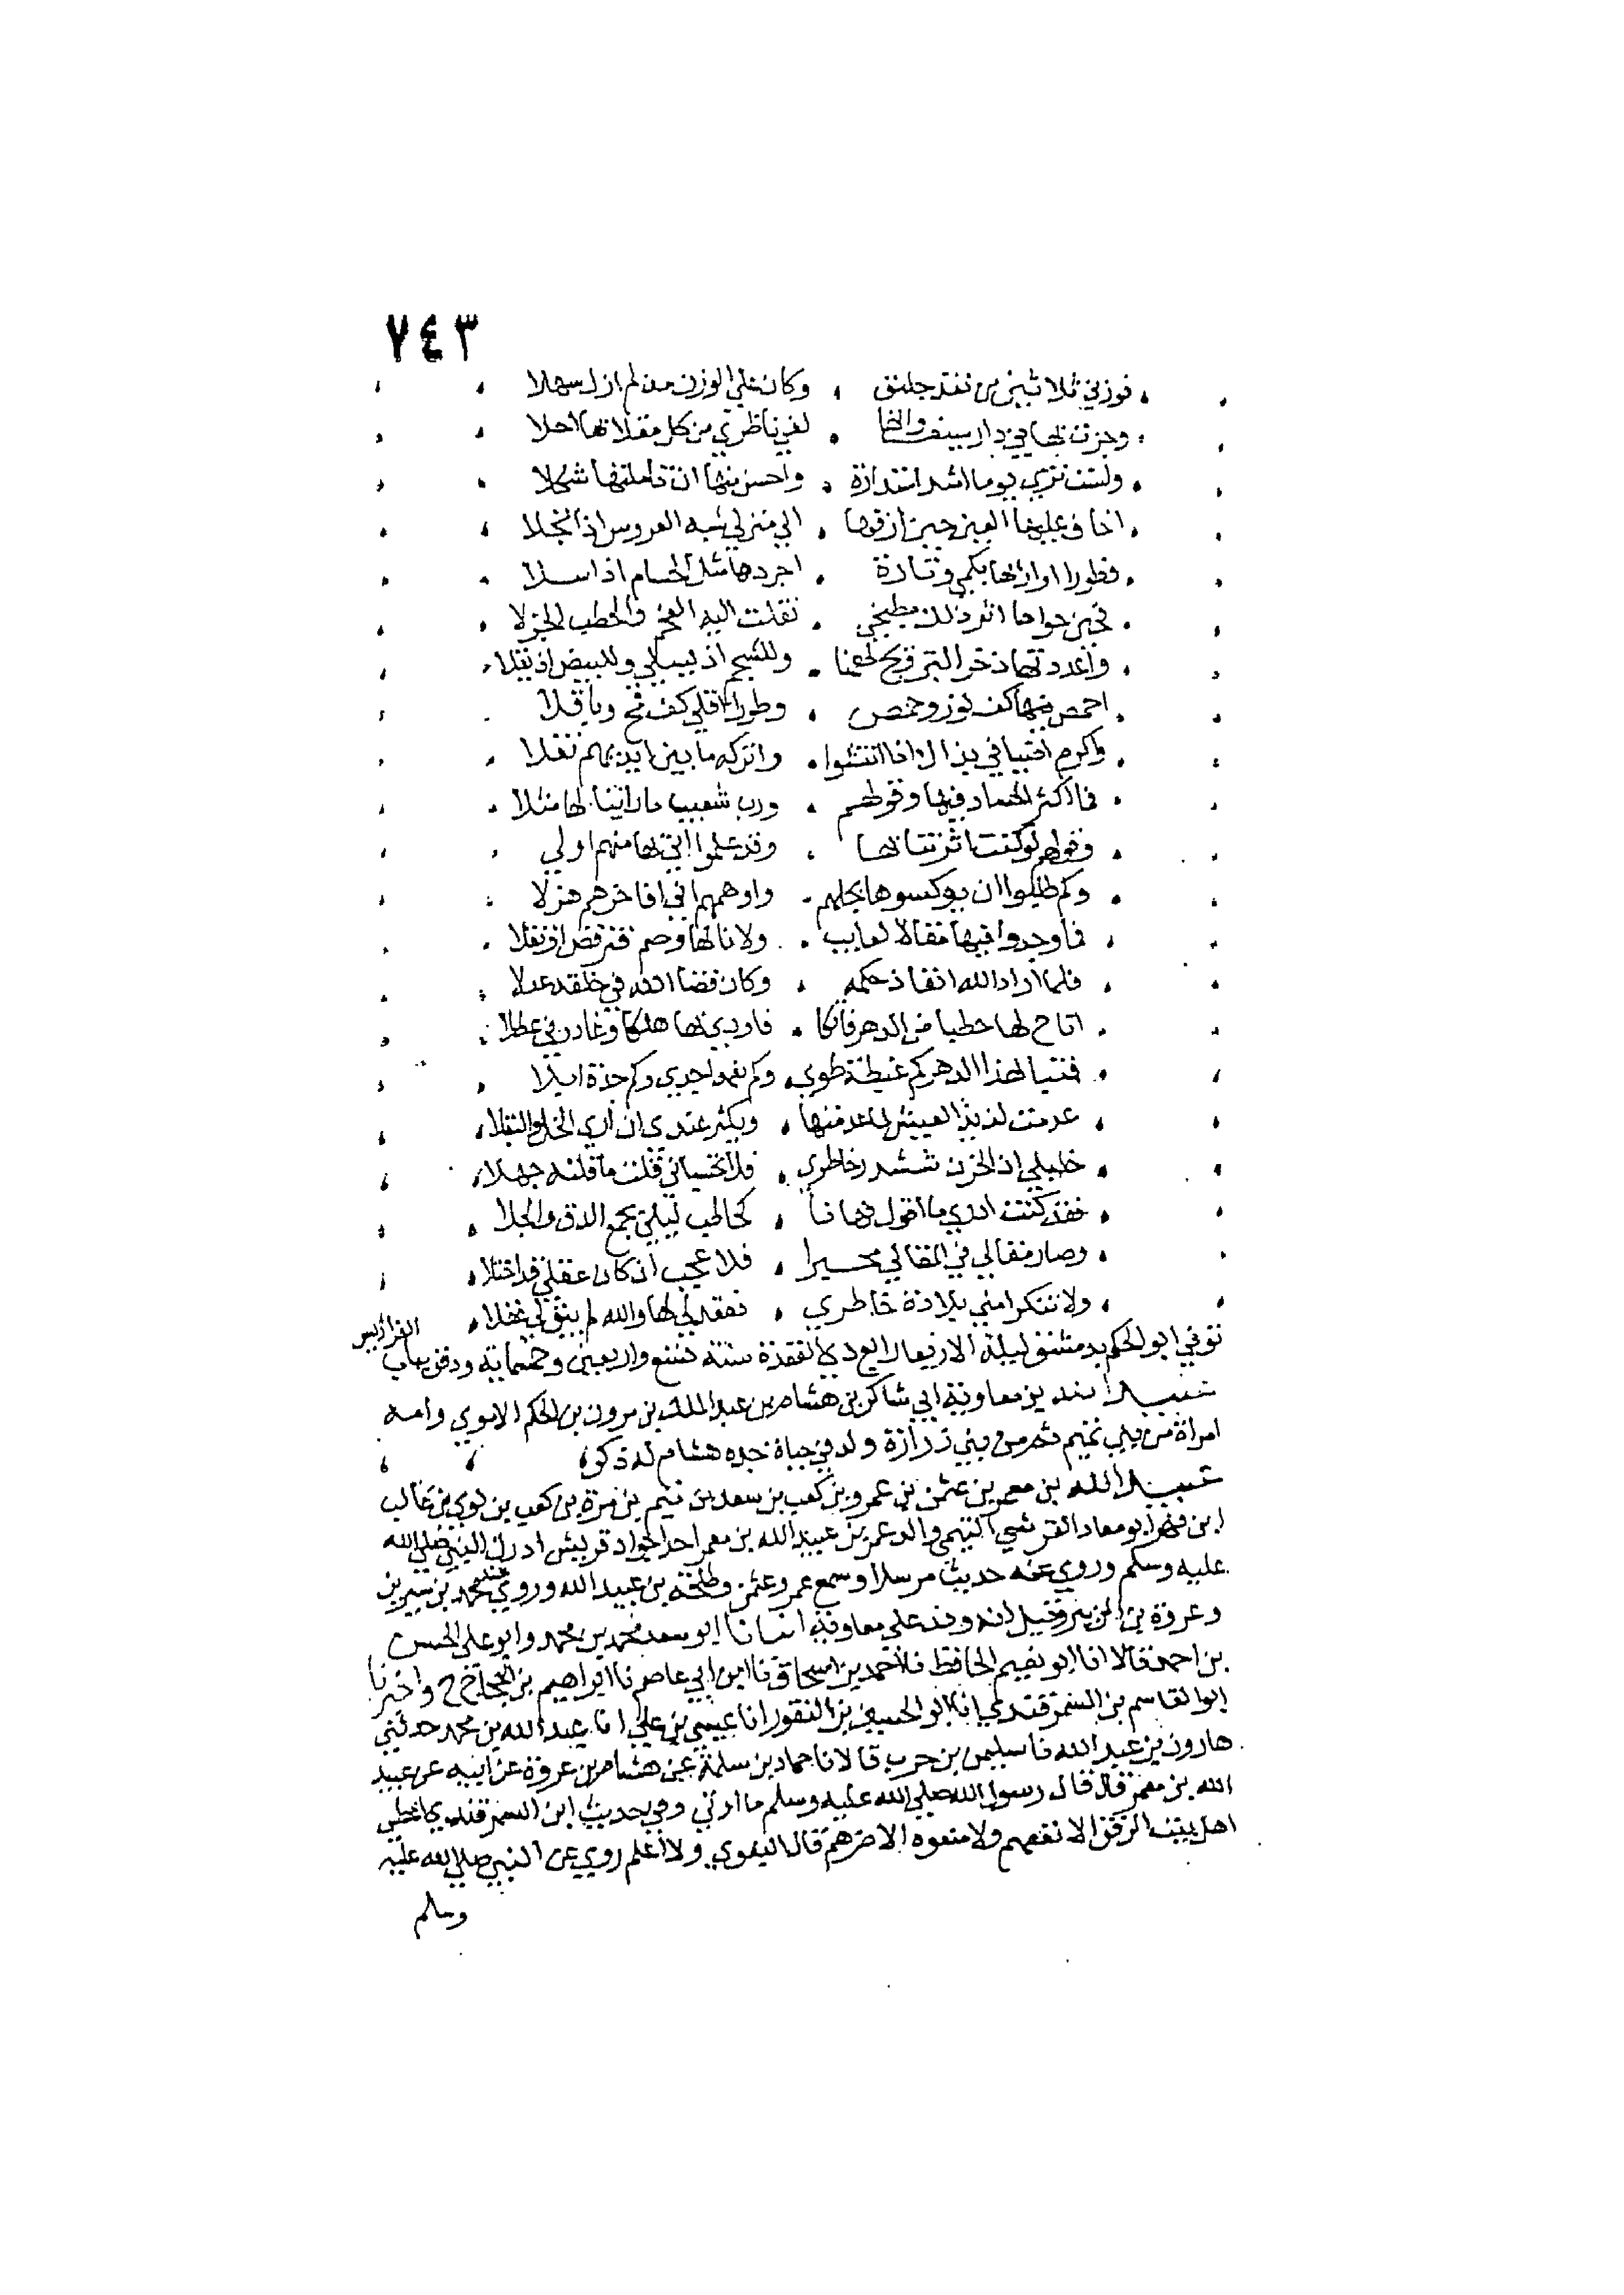 ٧٤٣
فوزني ثلاثين من نقد جلنق وكان على الوزن من لم ازل سهلا
وجزت بها في دار سيف والخا لفي ناظري من كل مقلاتها احلا
ولست تري يوما اشد استدارة واحسن منها ان تاملتها شكلا
اخاف عليها العين حين ازفها الي منزلي شبه العروس اذا تجلا
فطورا اواريها بكمي وتارة اجردها مثل الحسام اذا سلا
فحين حواها اثر ذلك مطبخي نقلت اليه الفحم والحطب الجزلا
واعددتها ذخرا لتفريح همنا وللشحم اذ يسلي وللبيض اذ يقلا
احمص فيها كف لوز وحمص وطورا اقلي كف قمح وباقلا
واكرم اضيافي بذاك اذا انتشوا واتركه ما بين ايديهم نقلا
فما اكثر الحساد فيها وقولهم ورب شعيب ما راينا لها مثلا
وقولهم لو كنت اثرتنا بها وقد علموا اني بها منهم اولي
وكم طلبوا ان يوكسوها بجهلهم واوهمهم اني افاخرهم هزلا
فما وجدوا فيها مقالا لعايب ولا نالها وصم فترفض او تقلا
فلما اراد الله انفاذ حكمه وكان قضا الله في خلقه عدلا
اتاح لها خطبا من الدهر فاتكا فاودي بها هلكا وغادرني عطلا
فتبا لهذا الدهر كم غبطة طوي وكم نعمة اجدي وكم جدة ابلا
عدمت لذيذ العيش بعد عدمتها ويكثر عندي ان اري الخل والبقلا
خليلي ان الحزن شتت خاطري فلا تحسباني قلت ما قلته جهلا
فقد كنت ادري ما اقول فها انا كحاطب ليل يجمع الدق والجلا
وصار مقالي في المقالي محسرا فلا عجب ان كان عقلي قد اختلا
ولا تنكرا مني بلادة خاطري ففقدي لها والله لم يبق لي عقلا
توفي ابو الحكم بدمشق ليلة الاربعا رابع ذي القعدة سنة تسع واربعين وخمسماية ودفن بباب الفراديس
عبيد الله بن معاوية ابي شاكر بن هشام بن عبد الملك بن مرون بن الحكم الاموي وامه
امراة من بني تميم ثم من بني زرارة ولد في حياة جده هشام له ذكر
عبيد الله بن معمر بن عثمن بن عمرو بن كعب بن سعد بن تيم بن مرة بن كعب بن لوي بن غالب
ابن فهر ابو معاد القرشي التيمي والد عمر بن عبيد الله بن معمر احد اجواد قريش ادرك النبي صلى الله
عليه وسلم وروي عنه حديثا مرسلا وسمع عمر وعثمن وطلحة بن عبيد الله وروي عنه محمد بن سيرين
وعروة بن الزبير وقيل انه وفد على معاوية انبانا ابو سعد محمد بن محمد وابو علي الحسن
بن احمد قالا انا ابو نعيم الحافظ نا احمد بن اسحاق نا ابن ابي عاصم نا ابراهيم بن الحجاج ح واخبرنا
ابو القاسم بن السمرقندي انا ابو الحسين بن النقور انا عيسي بن علي انا عبد الله بن محمد حدثني
هارون بن عبد الله نا سليمن بن حرب قالا نا حماد بن سلمة عن هشام بن عروة عن ابيه عن عبيد
الله بن معمر قال قال رسول الله صلي الله عليه وسلم ما اوتي وفي حديث ابن السمرقندي ما اعطي
اهل بيت الرفق الا نفعهم ولا منعوه الا ضرهم قال البغوي ولا اعلم روي عن النبي صلي الله عليه
وسلم